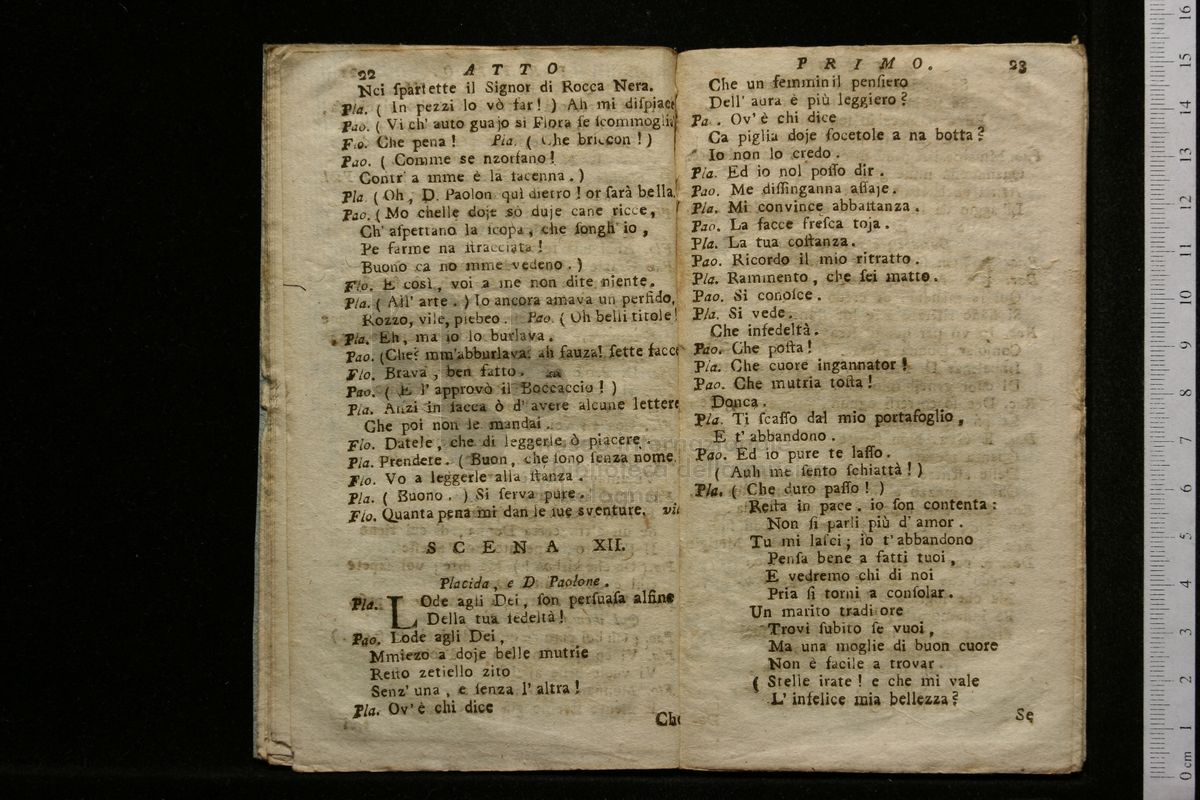 22 ATTO
Nci spartette il Signor di Rocca Nera.
Pla. ( In pezzi lo vò far! ) Ah mi dispiace
Pao. ( Vi ch' auto guajo si Flora se scommoglia
Flo. Che pena! Pla. ( Che briccon! )
Pao. ( Comme se nzorfano!
Contr' a mme è la tacenna. )
Pla ( Oh, D. Paolon quì dietro! or sarà bella.
Pao. ( Mo chelle doje sò duje cane ricce,
Ch' aspettano la scopa, che songh' io,
Pe farme na stracciata!
Buono ca no mme vedeno. )
Flo. E così, voi a me non dite niente.
Pla. ( All' arte. ) Io ancora amava un perfido,
Rozzo, vile, plebeo. Pao. ( Oh belli titole!
Pla. Eh, ma io lo burlava.
Pao. (Che? mm'abburlava! ah fauza! sette facce
Flo. Brava, ben fatto.
Pao. ( E l' approvò il Boccaccio! )
Pla. Anzi in sacca ò d' avere alcune lettere
Che poi non le mandai.
Flo. Datele, che di leggerle ò piacere.
Pla. Prendete. ( Buon, che sono senza nome.
Flo. Vo a leggerle alla stanza.
Pla. ( Buono. ) Si serva pure.
Flo. Quanta pena mi dan le sue sventure. via
SCENA XII.
Placida, e D. Paolone.
Pla. LOde agli Dei, son persuasa alfine
Della tua fedeltà!
Pao. Lode agli Dei,
Mmiezo a doje belle mutrie
Resto zetiello zito
Senz' una, e senza l' altra!
Pla. Ov' è chi dice
Che
PRIMO. 23
Che un femminil pensiero
Dell' aura è più leggiero?
Pa. . Ov' è chi dice
Ca piglia doje focetole a na botta?
Io non lo credo.
Pla. Ed io nol posso dir.
Pao. Me dissinganna assaje.
Pla. Mi convince abbastanza.
Pao. La facce fresca toja.
Pla. La tua costanza.
Pao. Ricordo il mio ritratto.
Pla. Rammento, che sei matto.
Pao. Si conosce.
Pla. Si vede.
Che infedeltà.
Pao. Che posta!
Pla. Che cuore ingannator!
Pao. Che mutria tosta!
Donca.
Pla. Ti scasso dal mio portafoglio,
E t' abbandono.
Pao. Ed io pure te lasso.
( Auh me sento schiattà! )
Pla. ( Che duro passo! )
Resta in pace. io son contenta:
Non si parli più d' amor.
Tu mi lasci; io t' abbandono
Pensa bene a fatti tuoi,
E vedremo chi di noi
Pria si torni a consolar.
Un marito tradi ore
Trovi subito se vuoi,
Ma una moglie di buon cuore
Non è facile a trovar.
( Stelle irate! e che mi vale
L' infelice mia bellezza?
Se